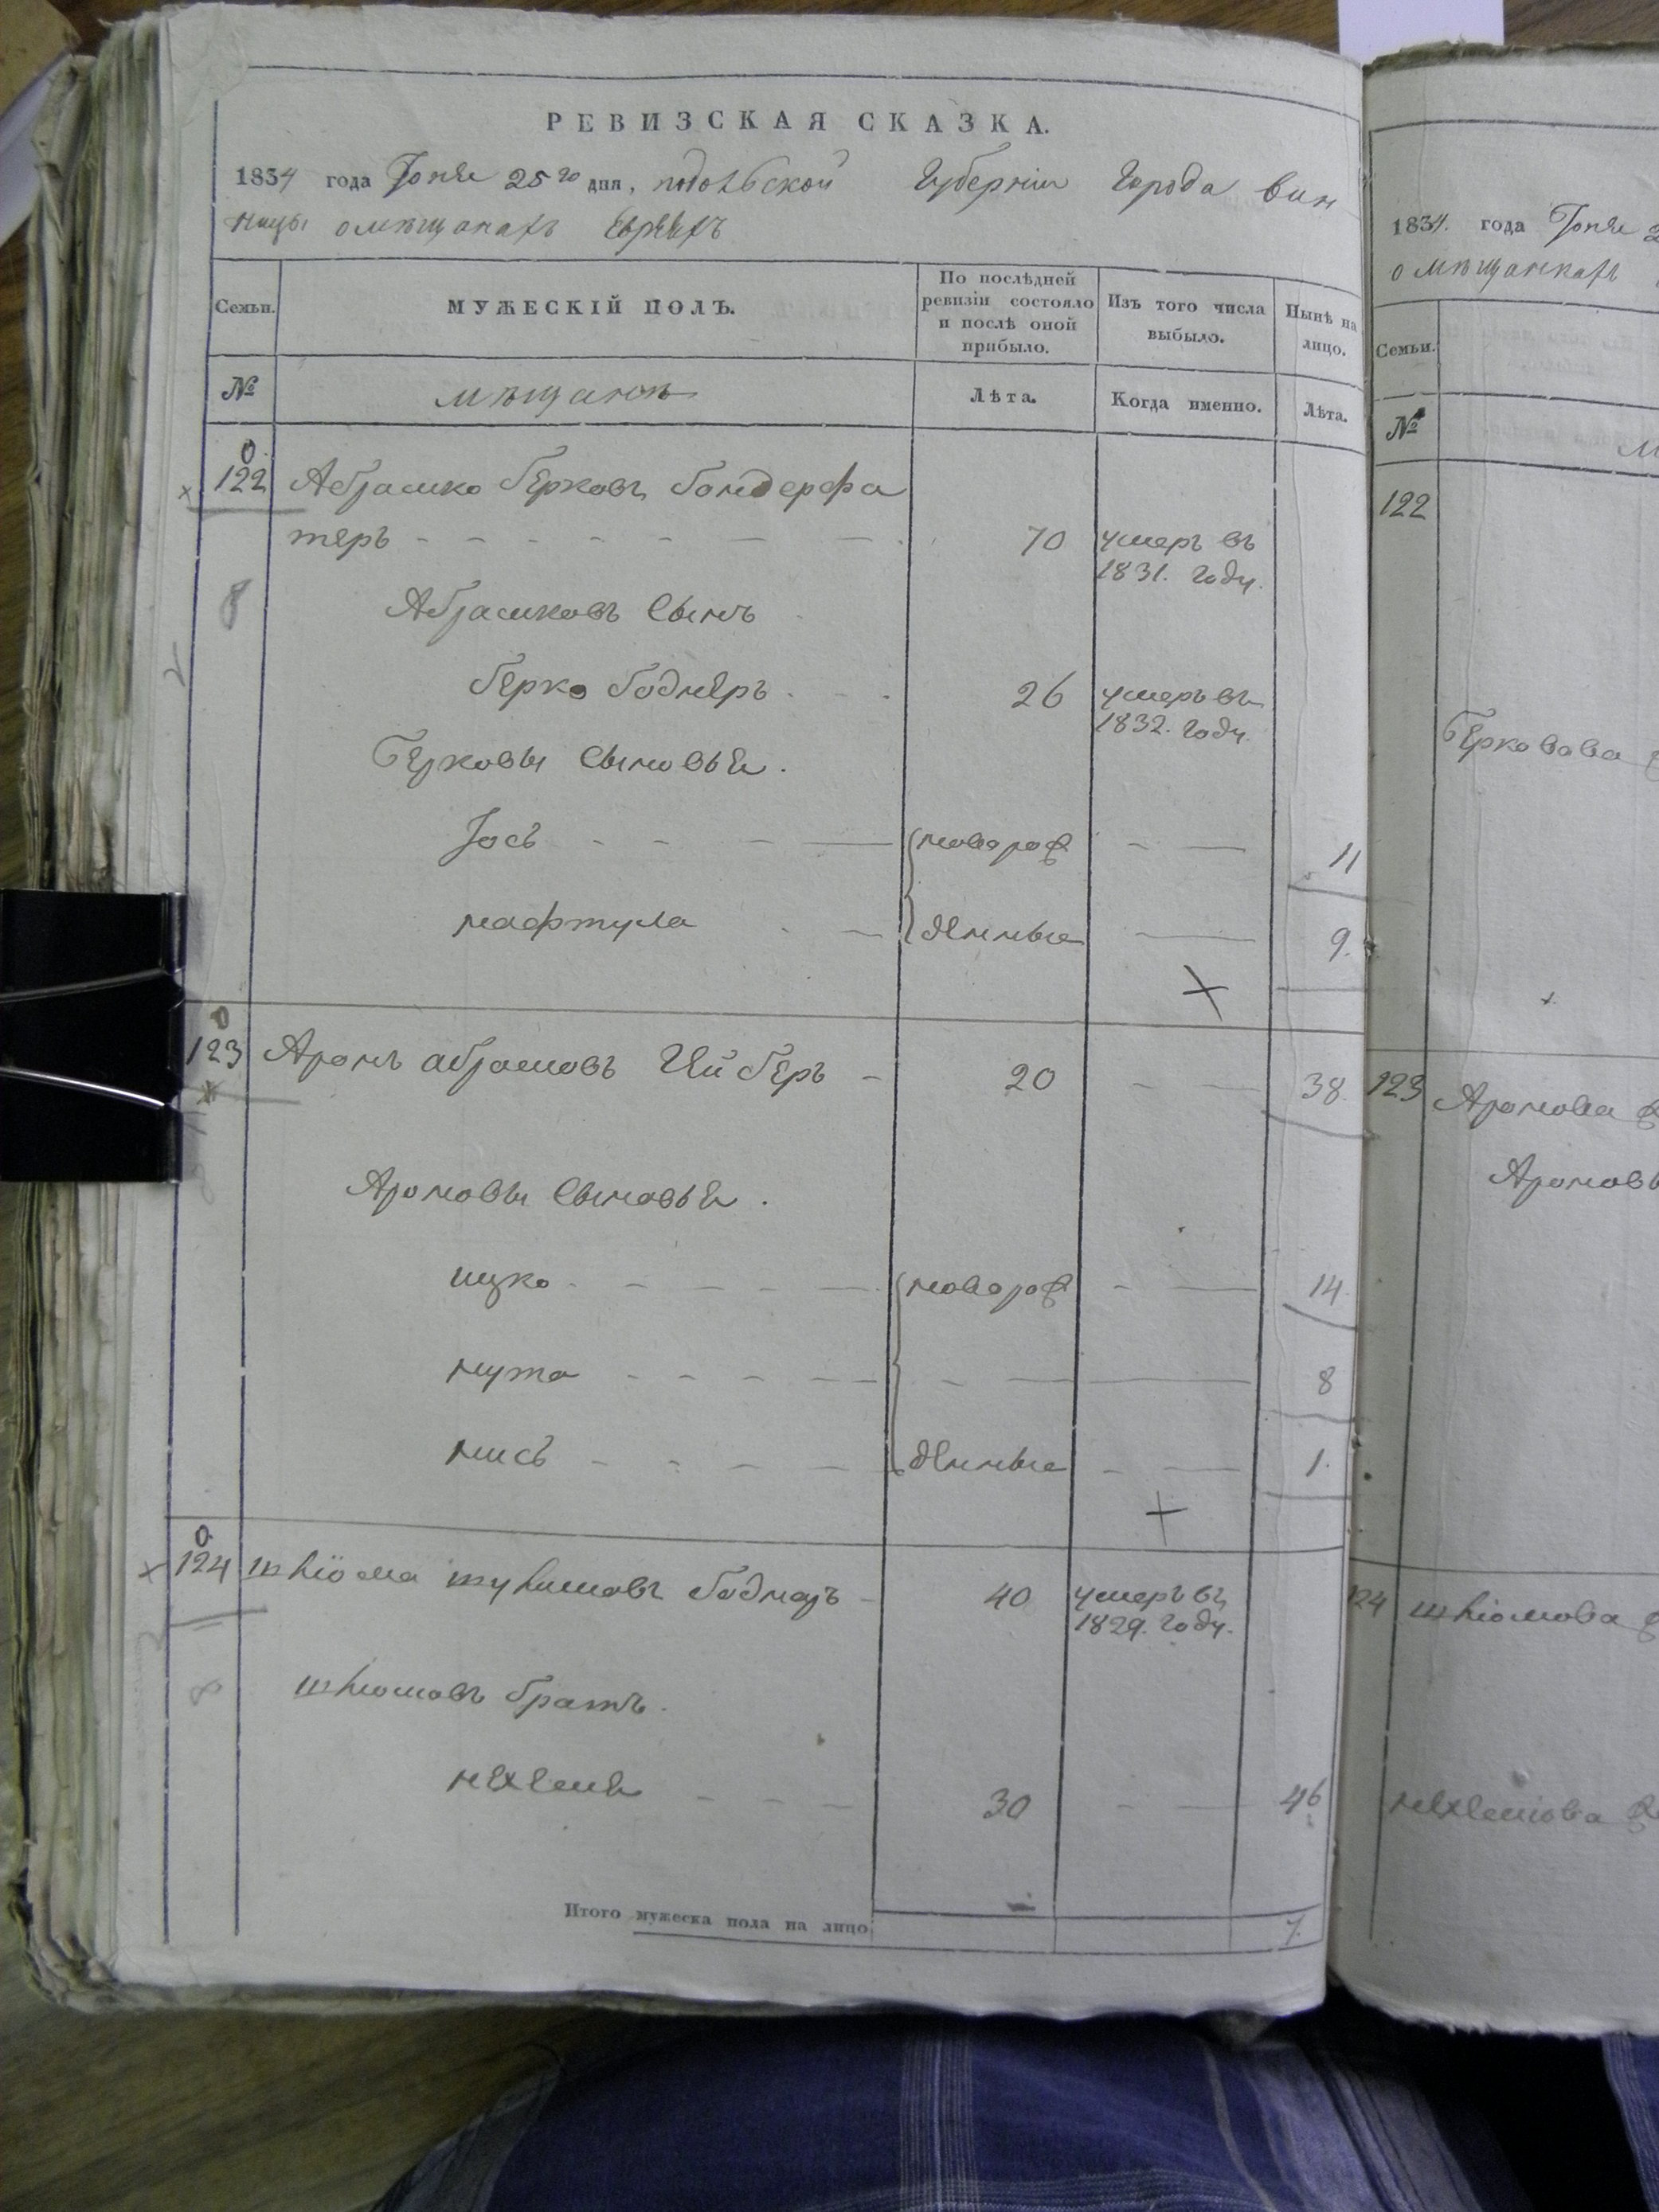 РЕВИЗСКАЯ СКАЗКА.
1834 года Іюня 25го дня, подольской Губерніи Города вин
ницы омѣщанахъ Евреяхъ
Семьи.
МУЖЕСКІЙ ПОЛЪ.
По послѣдней ревизіи состояло и послѣ оной прибыло.
Изъ того числа выбыло.
Нынѣ на лицо.
№
мѣщанѣ
Лѣта.
Когда именно.
Лѣта.
0
122 Абрашко Берковъ бондерфа
теръ 70 умеръ въ
1831. году.
Абрашковъ Сынъ
берко боднеръ 26 умеръ въ
1832. году.
Берковы Сыновья.
Іось новорож 11
нафтула денные 9.
0
123 Аронъ абрамовъ Гейберъ 20 38.
Ароновы Сыновья.
ицко новорож 14.
мута 8
нись денные 1.
0
124 шліома шулимовъ боднаръ 40 умеръ въ
1829. году.
шліомовъ братъ.
нехемя 30 46
Итого мужеска пола на лицо 7.
1834. года Іюня 2
о мѣщанкахъ
Семьи.
№
122
Беркова
123 Аронова
Аронов
124 шліомова
нехеміова